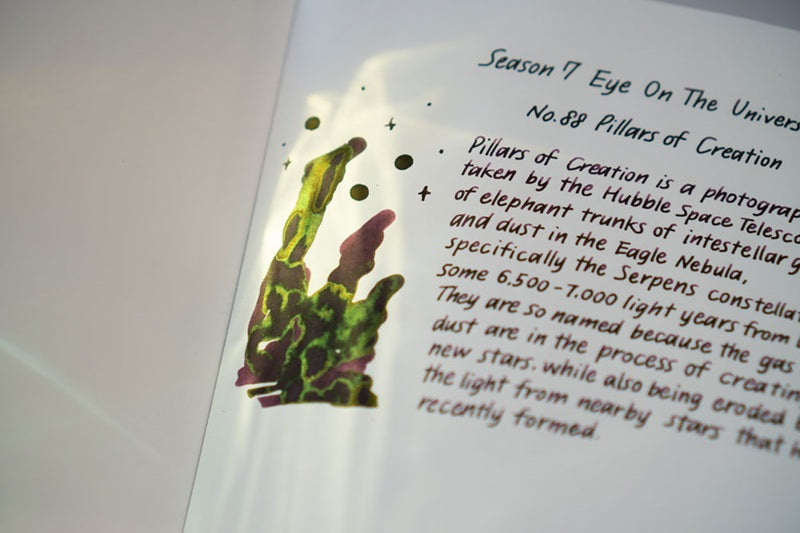 Season 7 Eye On The Univers
No.88 Pillars of Creation
Pillars of Creation is a photograp
taken by the Hubble Space Telesco
of elephant trunks of intestellar g
and dust in the Eagle Nebula,
specifically the Serpens constellat
some 6,500-7,000 light years from
They are so named because the gas
dust are in the process of creatin
new stars, while also being eroded
the light from nearby stars that
recently formed.